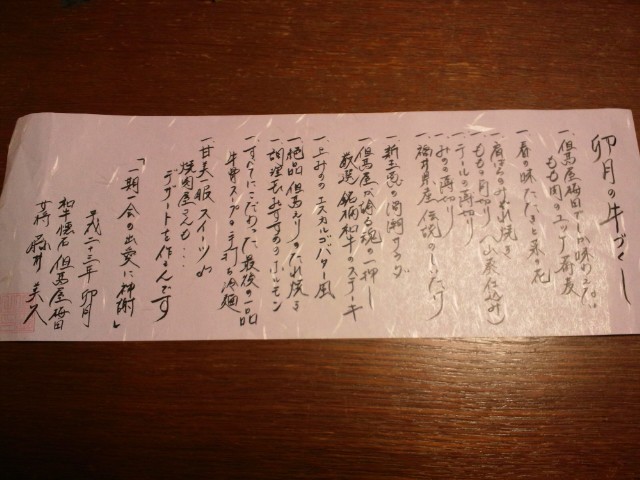 卯月の牛づくし
一、但馬屋梅田でしか味わえない
もも肉のユッケ蕎麦
一、春の味 たたきと菜の花
一、肩ばらのみぞれ焼き
一、ももの角切り (山菜仕込み)
一、テールの薄切り
一、みのの薄切り
一、福井県産 伝説のしいたけ
一、新玉葱の胡麻サラダ
一、但馬屋が誇る魂の一押し
厳選銘柄和牛のステーキ
一、上みののエスカルゴバター風
一、絶品 但馬えりのたれ焼き
一、調理長おすすめのホルモン
一、すべてにこだわった最後の一品
牛骨スープの手打ち冷麺
一、甘美一服 スイーツ
焼肉屋さんも・・・
デザートを作るんです
「一期一会の出愛に神謝」
平成二十三年 卯月
和牛懐石 但馬屋 梅田
女将